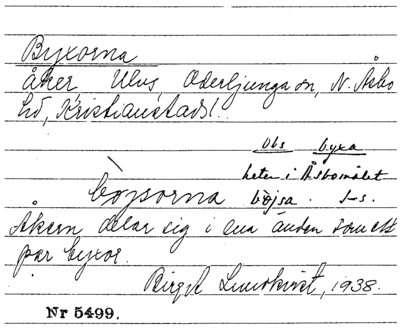 Byxorna
åker Ulvs, Oderljunga sn, N. Åsbo
hd, Kristianstads l.
Obs byxa
heter i Åsbomålet
böjsa. J-s.
böjsorna
Åkern delar sig i ena änden som ett
par byxor.
Birgit Lundkvist, 1938.
Nr 5499.